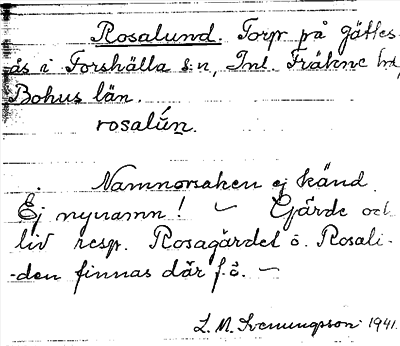 Rosalund. Torp på gättes-
ås i Forshälla s:n, Inl. Fräkne hd,
Bohus län.
rosalún.
Namnorsaken ej känd.
Ej nynamn! – Gärde och
liv resp. Rosagärdet o. Rosali-
-den finnas där f.ö. –
L. M. Svenungsson 1941.